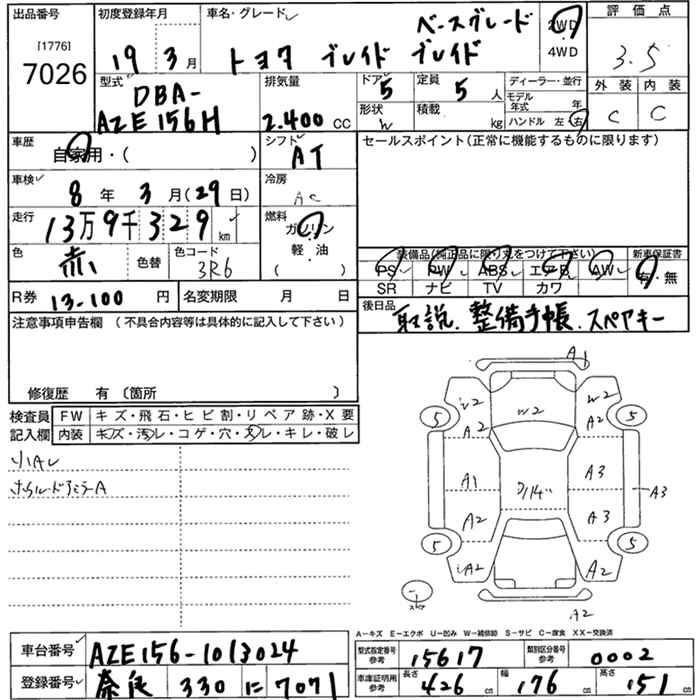 出品番号
[1776]
7026
初度登録年月
19 3月
車名・グレード
ベースグレード
トヨタ ブレイド ブレイド
2WD
4WD
評価点
3.5
外装 内装
C C
型式
DBA-
AZE156H
排気量
2.400 CC
ドア 定員
5 5人
形状 積載
kg
ディーラー・並行
モデル年式 年
ハンドル 左 右
車歴
自家用・( )
シフト
AT
車検
8年 3月(29日)
冷房
AC
走行
13万9千329 km
燃料
ガソリン
軽油
( )
色
赤
色替
色コード
3R6
R券 13-100 円
名変期限 月 日
セールスポイント(正常に機能するものに限ります)
装備品(純正品に限り丸をつけて下さい)
新車保証書
PS PW ABS エアB AW
SR ナビ TV カワ
有・無
後日品
取説. 整備手帳. スペアキー
注意事項申告欄 (不具合内容等は具体的に記入して下さい)
修復歴 有〔箇所 〕
検査員記入欄
FW キズ・飛石・ヒビ割・リペア跡・X要
内装 キズ・汚レ・コゲ・穴・スレ・キレ・破レ
A1
W2 W2 W2
5 A2 A2 5
A1 A3
A3
A2 A3
5 5
A2 A2
A2
A-キズ E-エクボ U-凹み W-補修跡 S-サビ C-腐食 XX-交換済
車台番号 AZE156-1013024
登録番号 奈良 330 に 7071
型式指定番号 参考 15617
類別区分番号 参考 0002
車庫証明用 参考
長さ 426 cm
幅 176 cm
高さ 151 cm